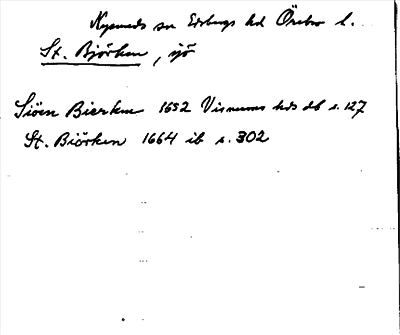 Kysmeds sn Edsbergs hd Örebro l.
St. Björken, sjö
Siöen Bierken 1652 Visnums hds db s. 127
St. Biörken 1664 ib s. 302